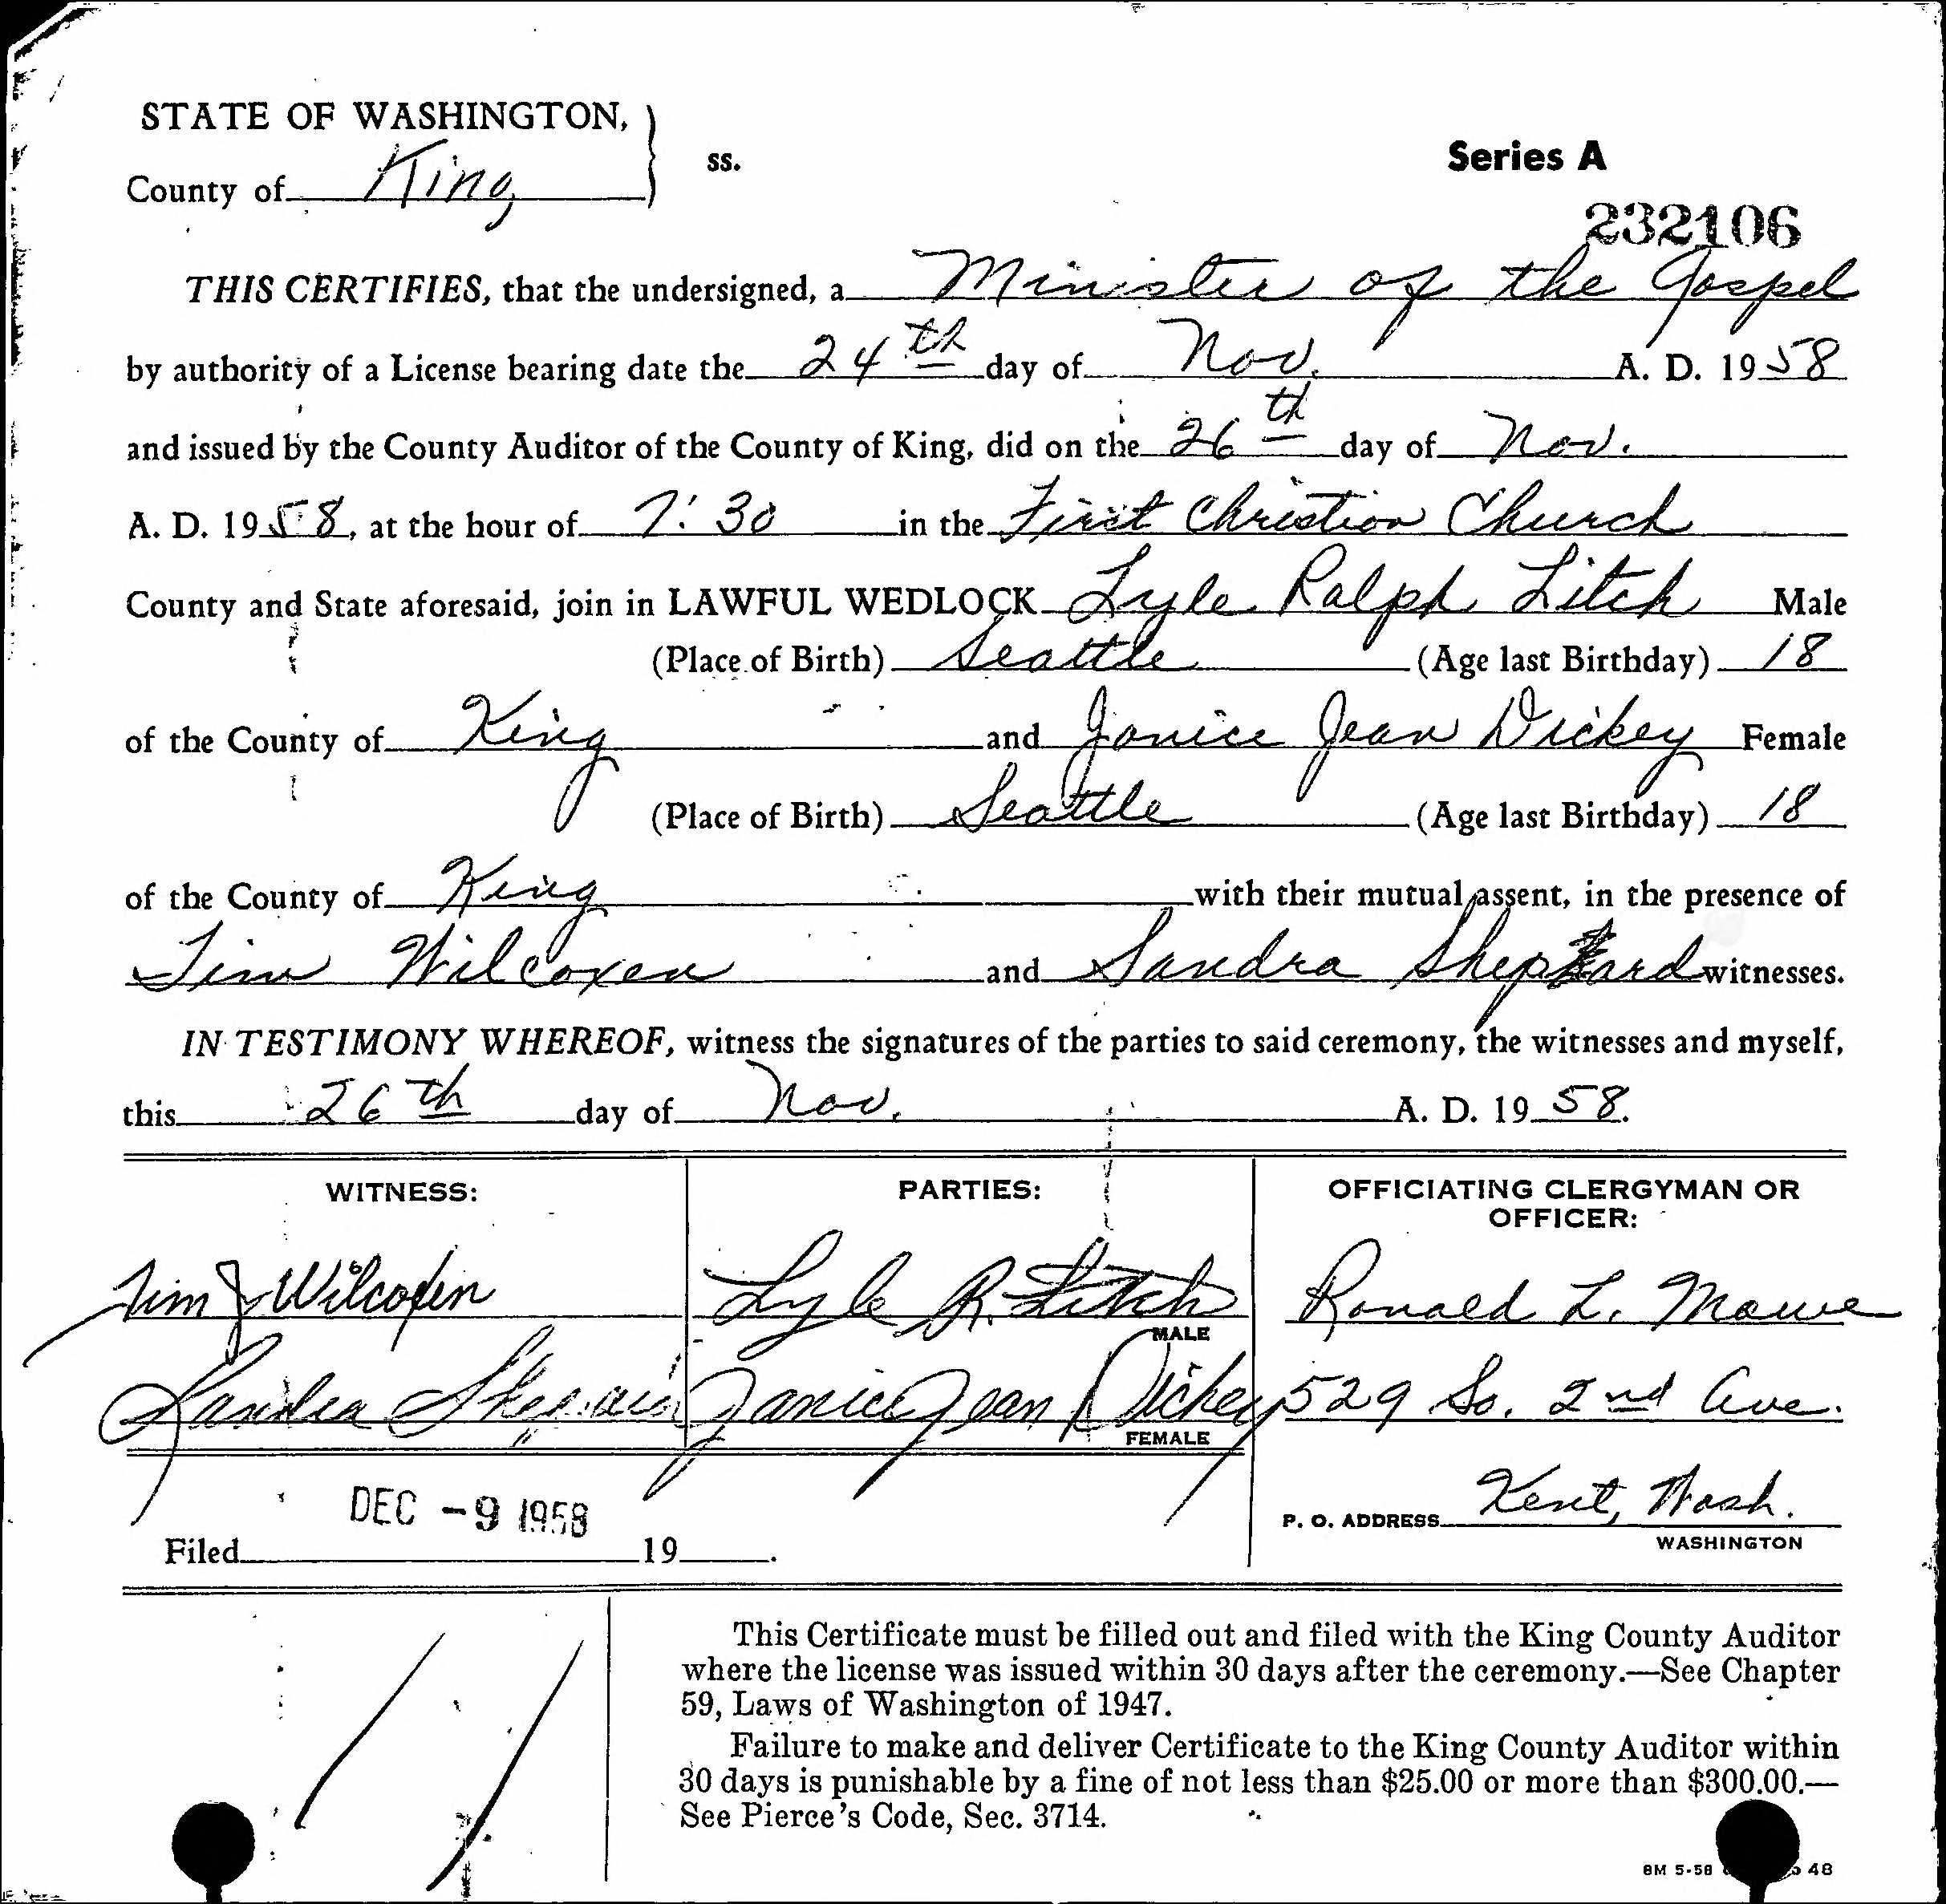 STATE OF WASHINGTON,
County of King ss.
Series A
232106
THIS CERTIFIES, that the undersigned, a Minister of the Gospel
by authority of a License bearing date the 24th day of Nov. A. D. 1958
and issued by the County Auditor of the County of King, did on the 26th day of Nov.
A. D. 1958, at the hour of 7:30 in the First Christian Church
County and State aforesaid, join in LAWFUL WEDLOCK Lyle Ralph Litch Male
(Place of Birth) Seattle (Age last Birthday) 18
of the County of King and Janice Jean Dickey Female
(Place of Birth) Seattle (Age last Birthday) 18
of the County of King with their mutual assent, in the presence of
Jim Wilcoxen and Sandra Shepard witnesses.
IN TESTIMONY WHEREOF, witness the signatures of the parties to said ceremony, the witnesses and myself,
this 26th day of Nov. A. D. 1958.
WITNESS: PARTIES: OFFICIATING CLERGYMAN OR
OFFICER:
Jim J Wilcoxen Lyle R. Litch Ronald L. Mowe
MALE
Sandra Janice Jean Dickey 529 So. 2nd Ave.
FEMALE
DEC -9 1958
P. O. ADDRESS Kent, Wash.
WASHINGTON
Filed 19 .
This Certificate must be filled out and filed with the King County Auditor
where the license was issued within 30 days after the ceremony.—See Chapter
59, Laws of Washington of 1947.
Failure to make and deliver Certificate to the King County Auditor within
30 days is punishable by a fine of not less than $25.00 or more than $300.00.—
See Pierce's Code, Sec. 3714.
8M 5-58 48